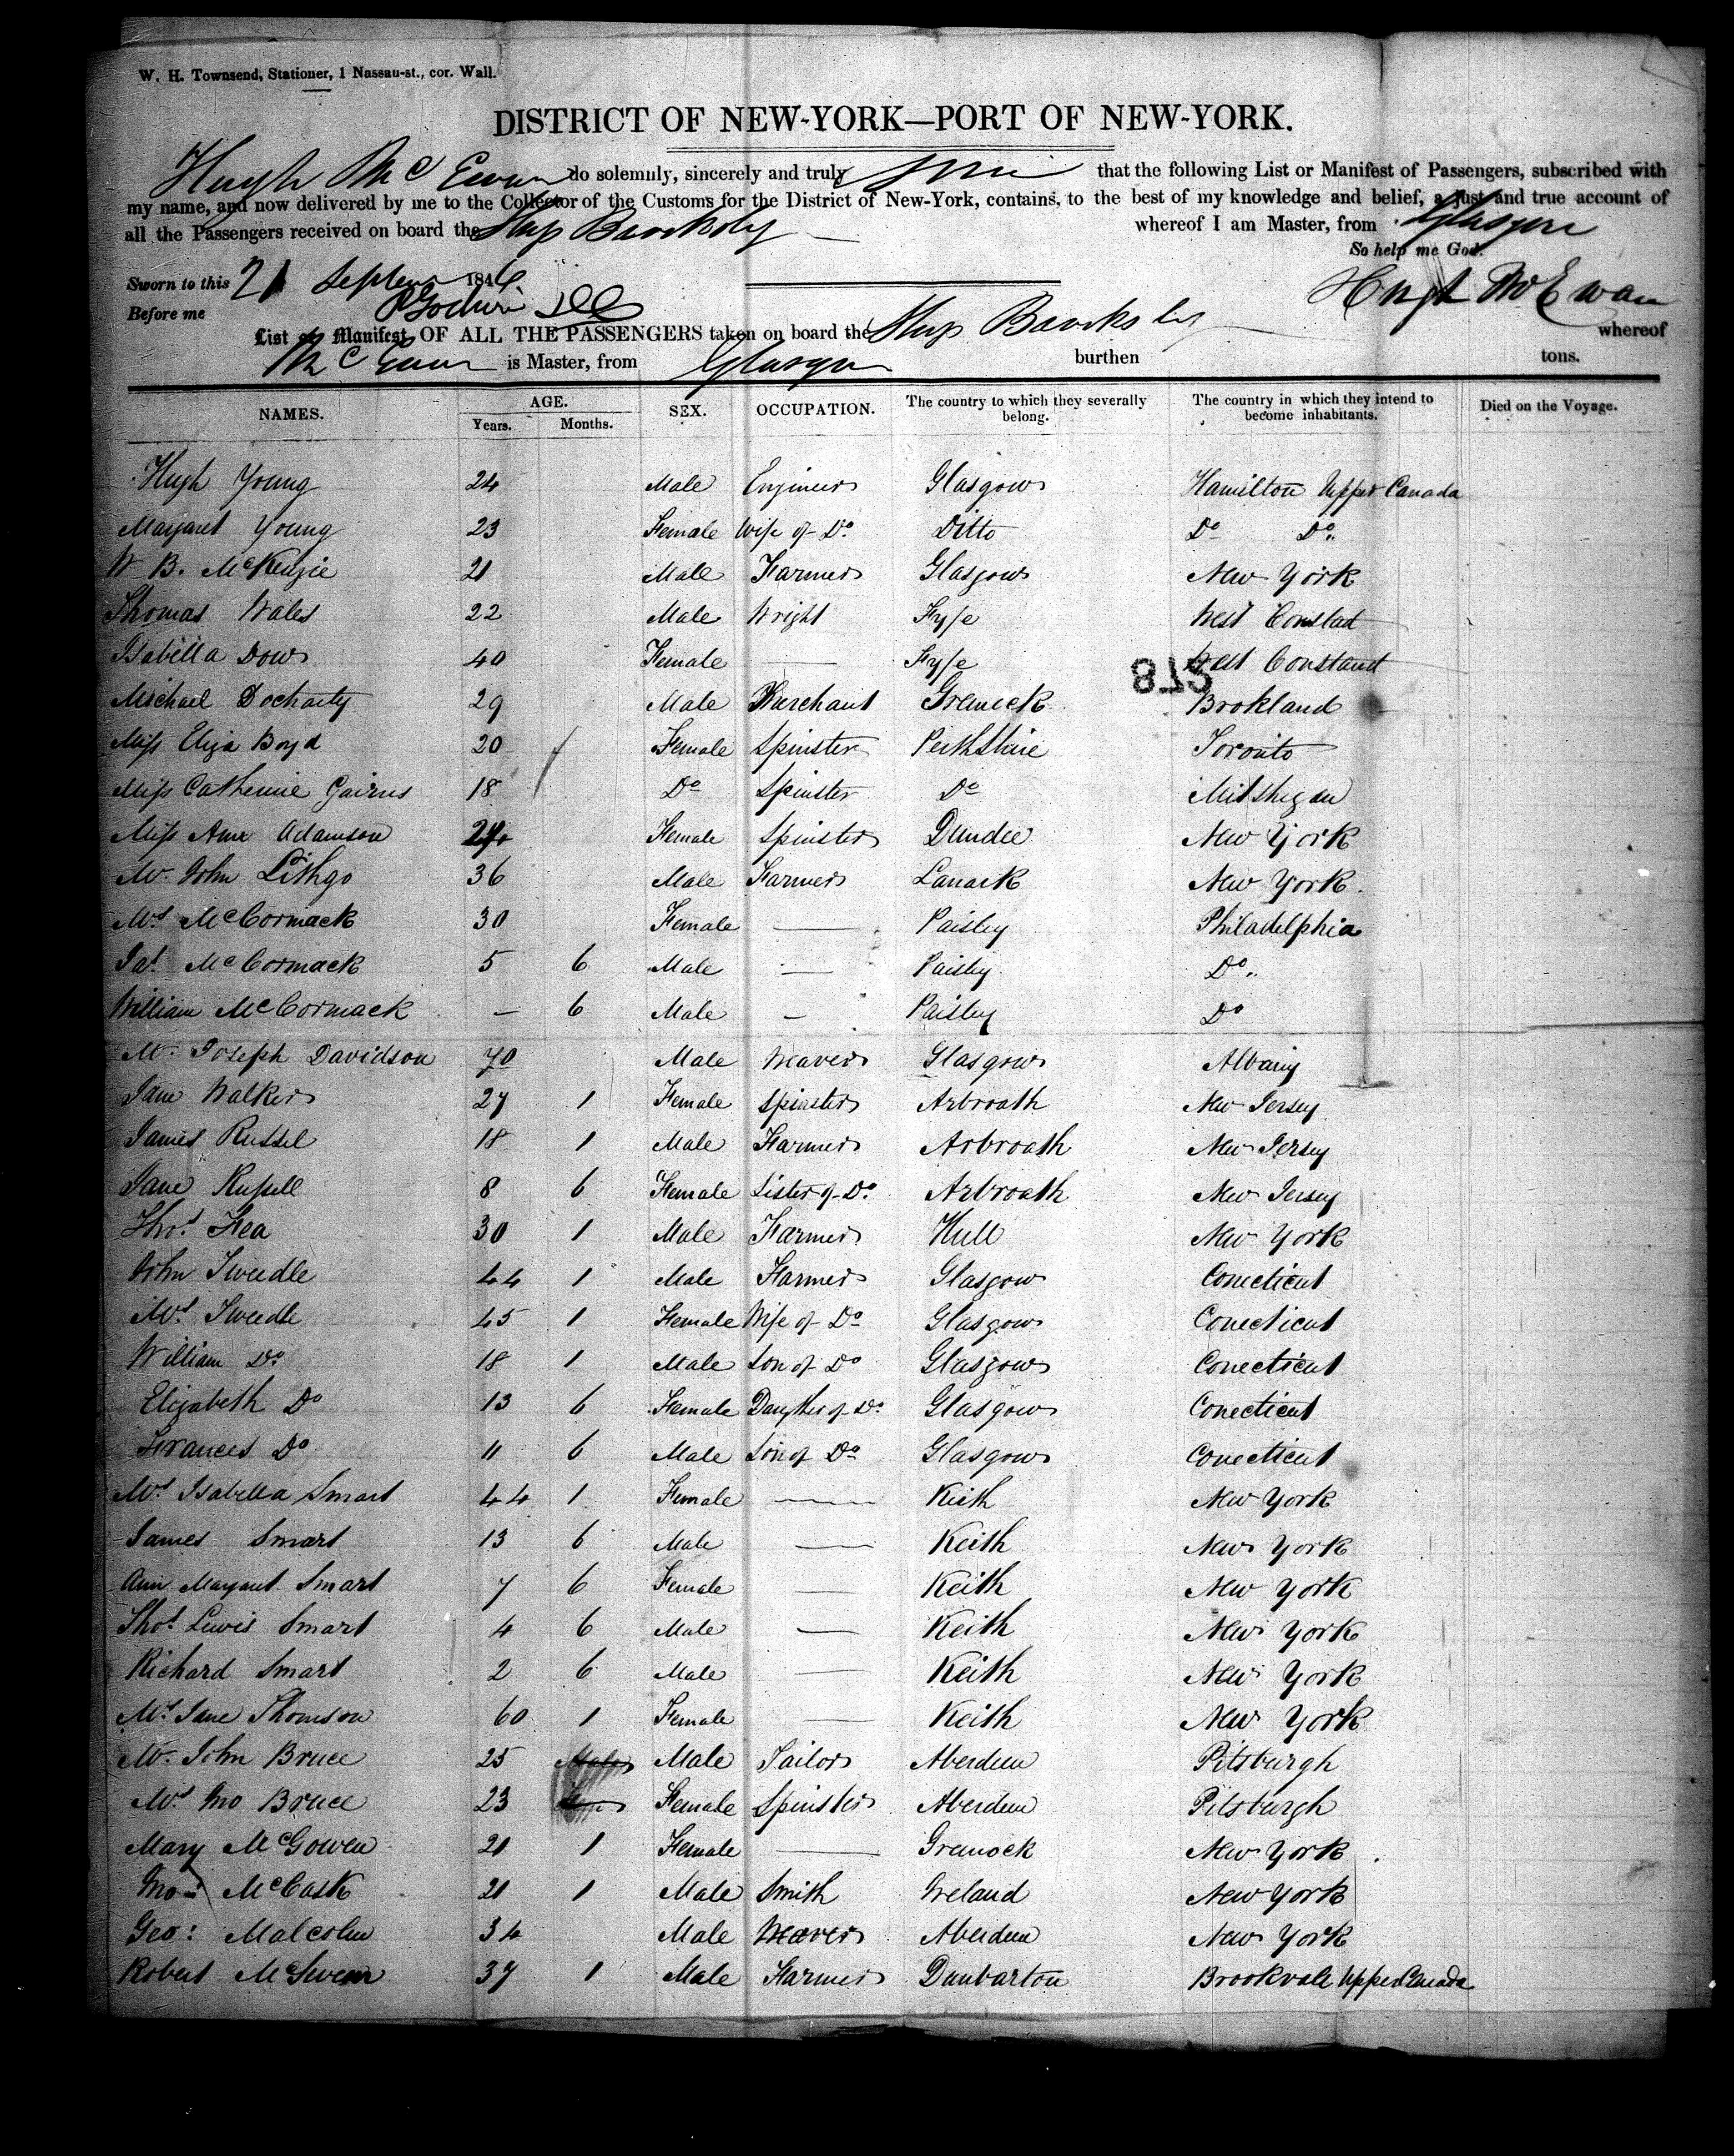 W. H. Townsend, Stationer, 1 Nassau-st., cor. Wall.
DISTRICT OF NEW-YORK—PORT OF NEW-YORK.
Hugh McEwan do solemnly, sincerely and truly that the following List or Manifest of Passengers, subscribed with
my name, and now delivered by me to the Collector of the Customs for the District of New-York, contains, to the best of my knowledge and belief, a just and true account of
all the Passengers received on board the Ship whereof I am Master, from Glasgow
So help me God.
Sworn to this 21 184
Before me
Hugh McEwan
List or Manifest OF ALL THE PASSENGERS taken on board the Ship whereof
McEwan is Master, from Glasgow burthen tons.
NAMES. AGE. Years. Months. SEX. OCCUPATION. The country to which they severally belong. The country in which they intend to become inhabitants. Died on the Voyage.
Hugh Young 24 Male Engineer Glasgow Hamilton Upper Canada
Margaret Young 23 Female Wife of Do. Ditto Do Do.
W B. McKenzie 21 Male Farmer Glasgow New York
Thomas Wales 22 Male Wright Fyfe West
Isabella Dow 40 Female — Fyfe West
878
Michael Docharty 29 Male Merchant Greneck Brokland
Miss Eliza Boyd 20 Female Spinster Perthshire Toronto
Miss Catherine Gairns 18 Do Spinster Do Mitshegan
Miss Ann Adamson 24 Female Spinster Dundee New York
Mr. John Lithgo 36 Male Farmer Lanark New York.
Mrs McCormack 30 Female — Paisley Philadelphia
Jas. McCormack 5 6 Male — Paisley Do.
William McCormack — 6 Male — Paisley Do
Mr. Joseph Davidson 70 Male Weaver Glasgow Albany
Jane Walker 27 1 Female Spinster Arbroath New Jersey
James Russel 18 1 Male Farmer Arbroath New Jersey
Jane Russell 8 6 Female Sister of Do. Arbroath New Jersey
Thos. Fea 30 1 Male Farmer Hull New York
John Tweedle 44 1 Male Farmer Glasgow Conecticut
Mrs. Tweedle 45 1 Female Wife of Do Glasgow Conecticut
William Do. 18 1 Male Son of Do Glasgow Conecticut
Elizabeth Do 13 6 Female Daugther of Do. Glasgow Conecticut
Frances Do 11 6 Male Son of Do Glasgow Conecticut
Mrs Isabella Smart 44 1 Female — Keith New York
James Smart 13 6 Male — Keith New York
Ann Margaret Smart 7 6 Female — Keith New York
Thos. Lewis Smart 4 6 Male — Keith New York
Richard Smart 2 6 Male — Keith New York
Mrs Jane Thomson 60 1 Female — Keith New York
Mr. John Bruce 25 Male Male Tailor Aberdeen Pitsburgh
Mrs Jno Bruce 23 Female Spinster Aberdeen Pitsburgh
Mary McGowen 21 1 Female — Greenock New York
Jno: McCask 21 1 Male Smith Ireland New York
Geo: Malcolm 34 Male Weaver Aberdeen New York
Robert 37 1 Male Farmer Dunbarton Brookvale Upper Canada